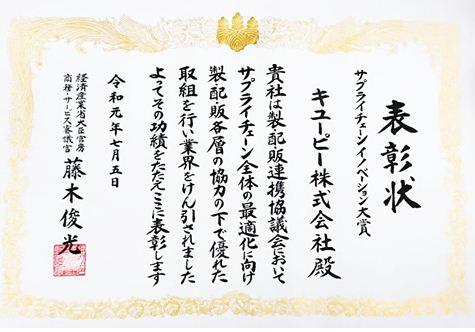 表彰状
サプライチェーンイノベーション大賞
キユーピー株式会社殿
貴社は製・配・販連携協議会において
サプライチェーン全体の最適化に向け
製・配・販各層の協力の下で優れた
取組を行い業界をけん引されました
よってその功績をたたえここに表彰します
令和元年七月五日
経済産業省大臣官房
商務・サービス審議官
藤木俊光